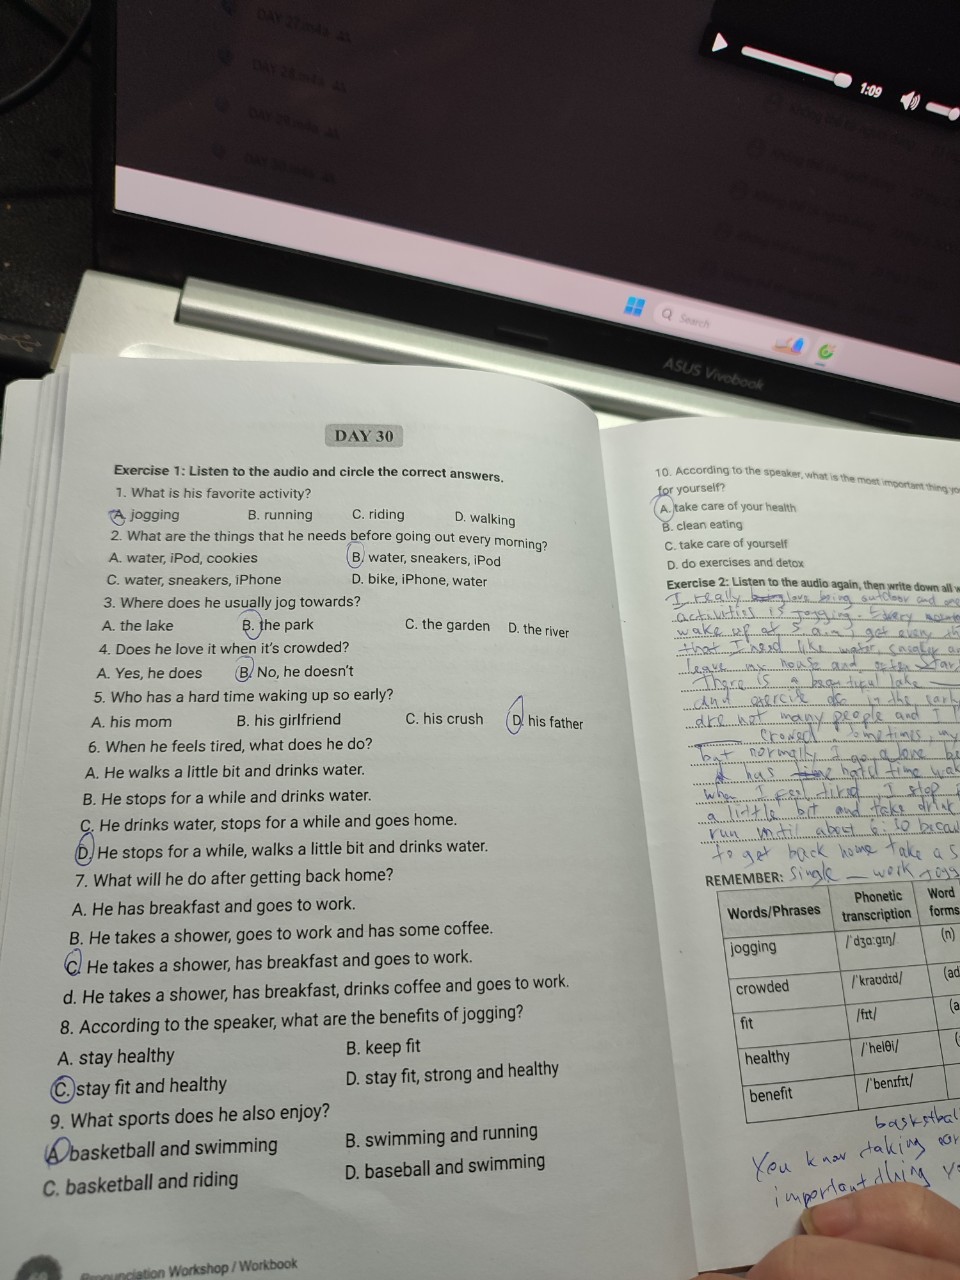 DAY 27.m4a
DAY 28.m4a
DAY 29.m4a
DAY 30.m4a
1:09
Search
ASUS Vivobook
DAY 30
Exercise 1: Listen to the audio and circle the correct answers.
1. What is his favorite activity?
A. jogging B. running C. riding D. walking
2. What are the things that he needs before going out every morning?
A. water, iPod, cookies B. water, sneakers, iPod
C. water, sneakers, iPhone D. bike, iPhone, water
3. Where does he usually jog towards?
A. the lake B. the park C. the garden D. the river
4. Does he love it when it's crowded?
A. Yes, he does B. No, he doesn't
5. Who has a hard time waking up so early?
A. his mom B. his girlfriend C. his crush D. his father
6. When he feels tired, what does he do?
A. He walks a little bit and drinks water.
B. He stops for a while and drinks water.
C. He drinks water, stops for a while and goes home.
D. He stops for a while, walks a little bit and drinks water.
7. What will he do after getting back home?
A. He has breakfast and goes to work.
B. He takes a shower, goes to work and has some coffee.
C. He takes a shower, has breakfast and goes to work.
d. He takes a shower, has breakfast, drinks coffee and goes to work.
8. According to the speaker, what are the benefits of jogging?
A. stay healthy B. keep fit
C. stay fit and healthy D. stay fit, strong and healthy
9. What sports does he also enjoy?
A. basketball and swimming B. swimming and running
C. basketball and riding D. baseball and swimming
Pronunciation Workshop / Workbook
10. According to the speaker, what is the most important thing
for yourself?
A. take care of your health
B. clean eating
C. take care of yourself
D. do exercises and detox
Exercise 2: Listen to the audio again, then write down all
I really love being outdoor and
activities is jogging. Every
wake up at 5 a.m, get every
that I need like water,
leave my house and often
There is a beautiful lake
and exercise in the
are not many people and I
crowed. Sometimes, my
but normally I go alone
has time
when I feel tired, I stop
a little bit and take drink
run until about 6:30
to get back home take a
REMEMBER: single work
Words/Phrases Phonetic transcription Word forms
jogging /'dʒɑːgɪŋ/ (n)
crowded /'kraʊdɪd/
fit /fɪt/
healthy /'helθi/
benefit /'benɪfɪt/
You know taking
important thing